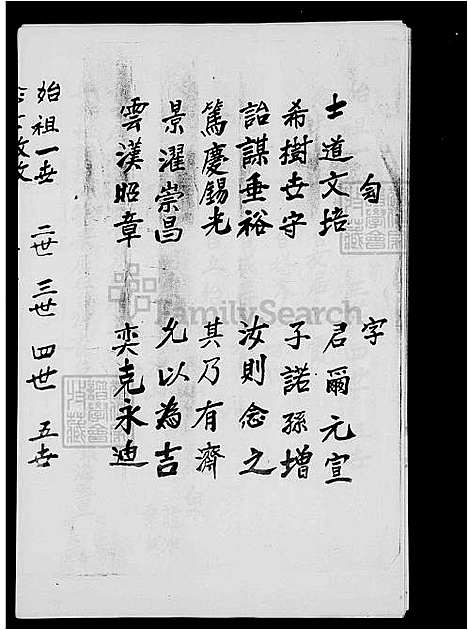 匀 字
士道文培 君爾元宣
希樹世守 子諾孫增
詒謀垂裕 汝則念之
篤慶錫光 其乃有濟
景濯崇昌 允以為吉
雲漢昭章 奕克永迪
始祖一世 二世 三世 四世 五世
FamilySearch